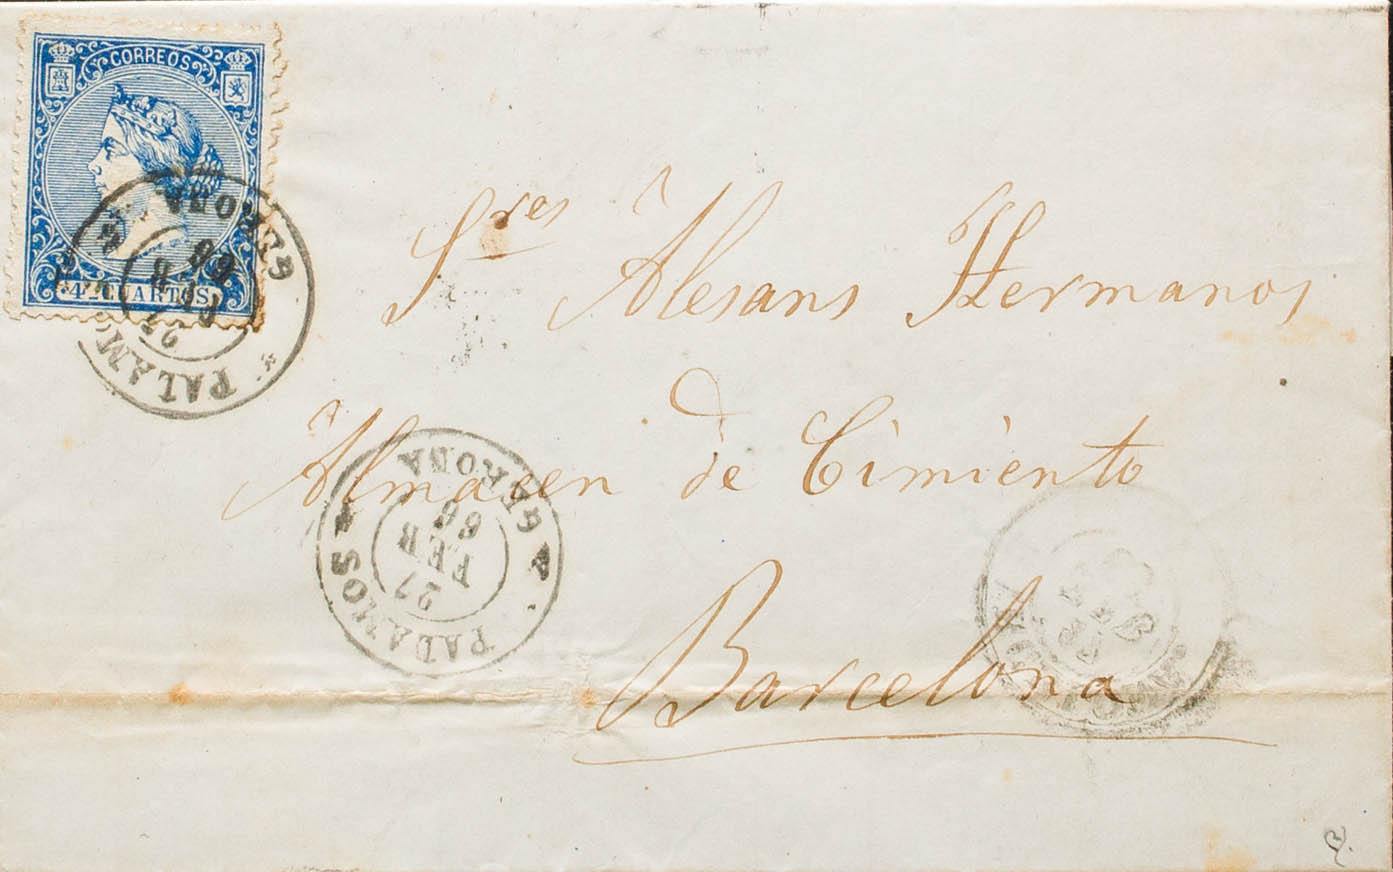 CORREOS
4 CUARTOS
PALAMOS
GERONA
Sres Alesans Hermanos
Almacen de Cimiento
Barcelona
PALAMOS
GERONA
27
FEB
66